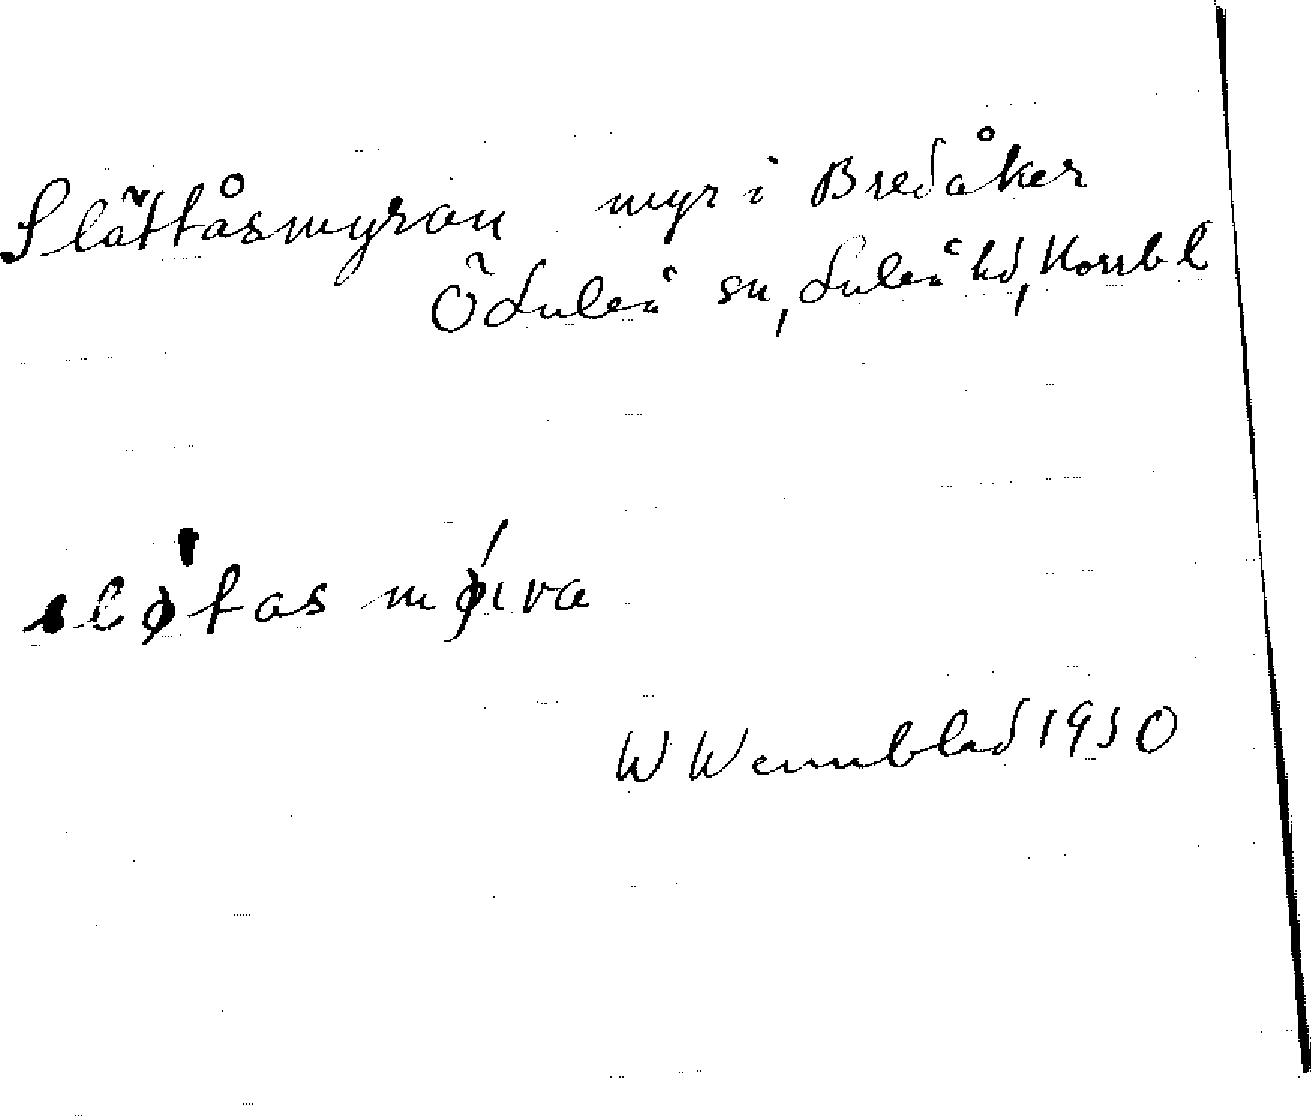 Slättåsmyran myr i Bredåker
ÖLuleå sn, Luleå hd, Norrb l
slǿtas mǿıra
W Wennblad 1930